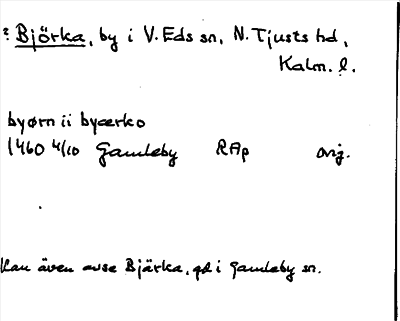 ? Björka, by i V. Eds sn, N. Tjusts hd,
Kalm. l.
byørn ii byærko
1460 4/10 Gamleby RAp orig.
Kan även avse Bjärka, gd i Gamleby sn.